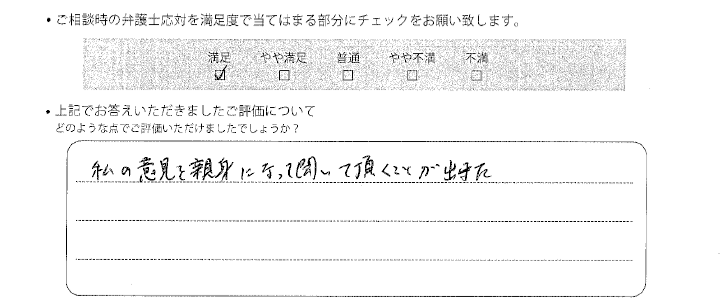 ・ご相談時の弁護士応対を満足度で当てはまる部分にチェックをお願い致します。
満足 やや満足 普通 やや不満 不満
☑ □ □ □ □
・上記でお答えいただきましたご評価について
どのような点でご評価いただけましたでしょうか?
私の意見を親身になって聞いて頂くことが出来た